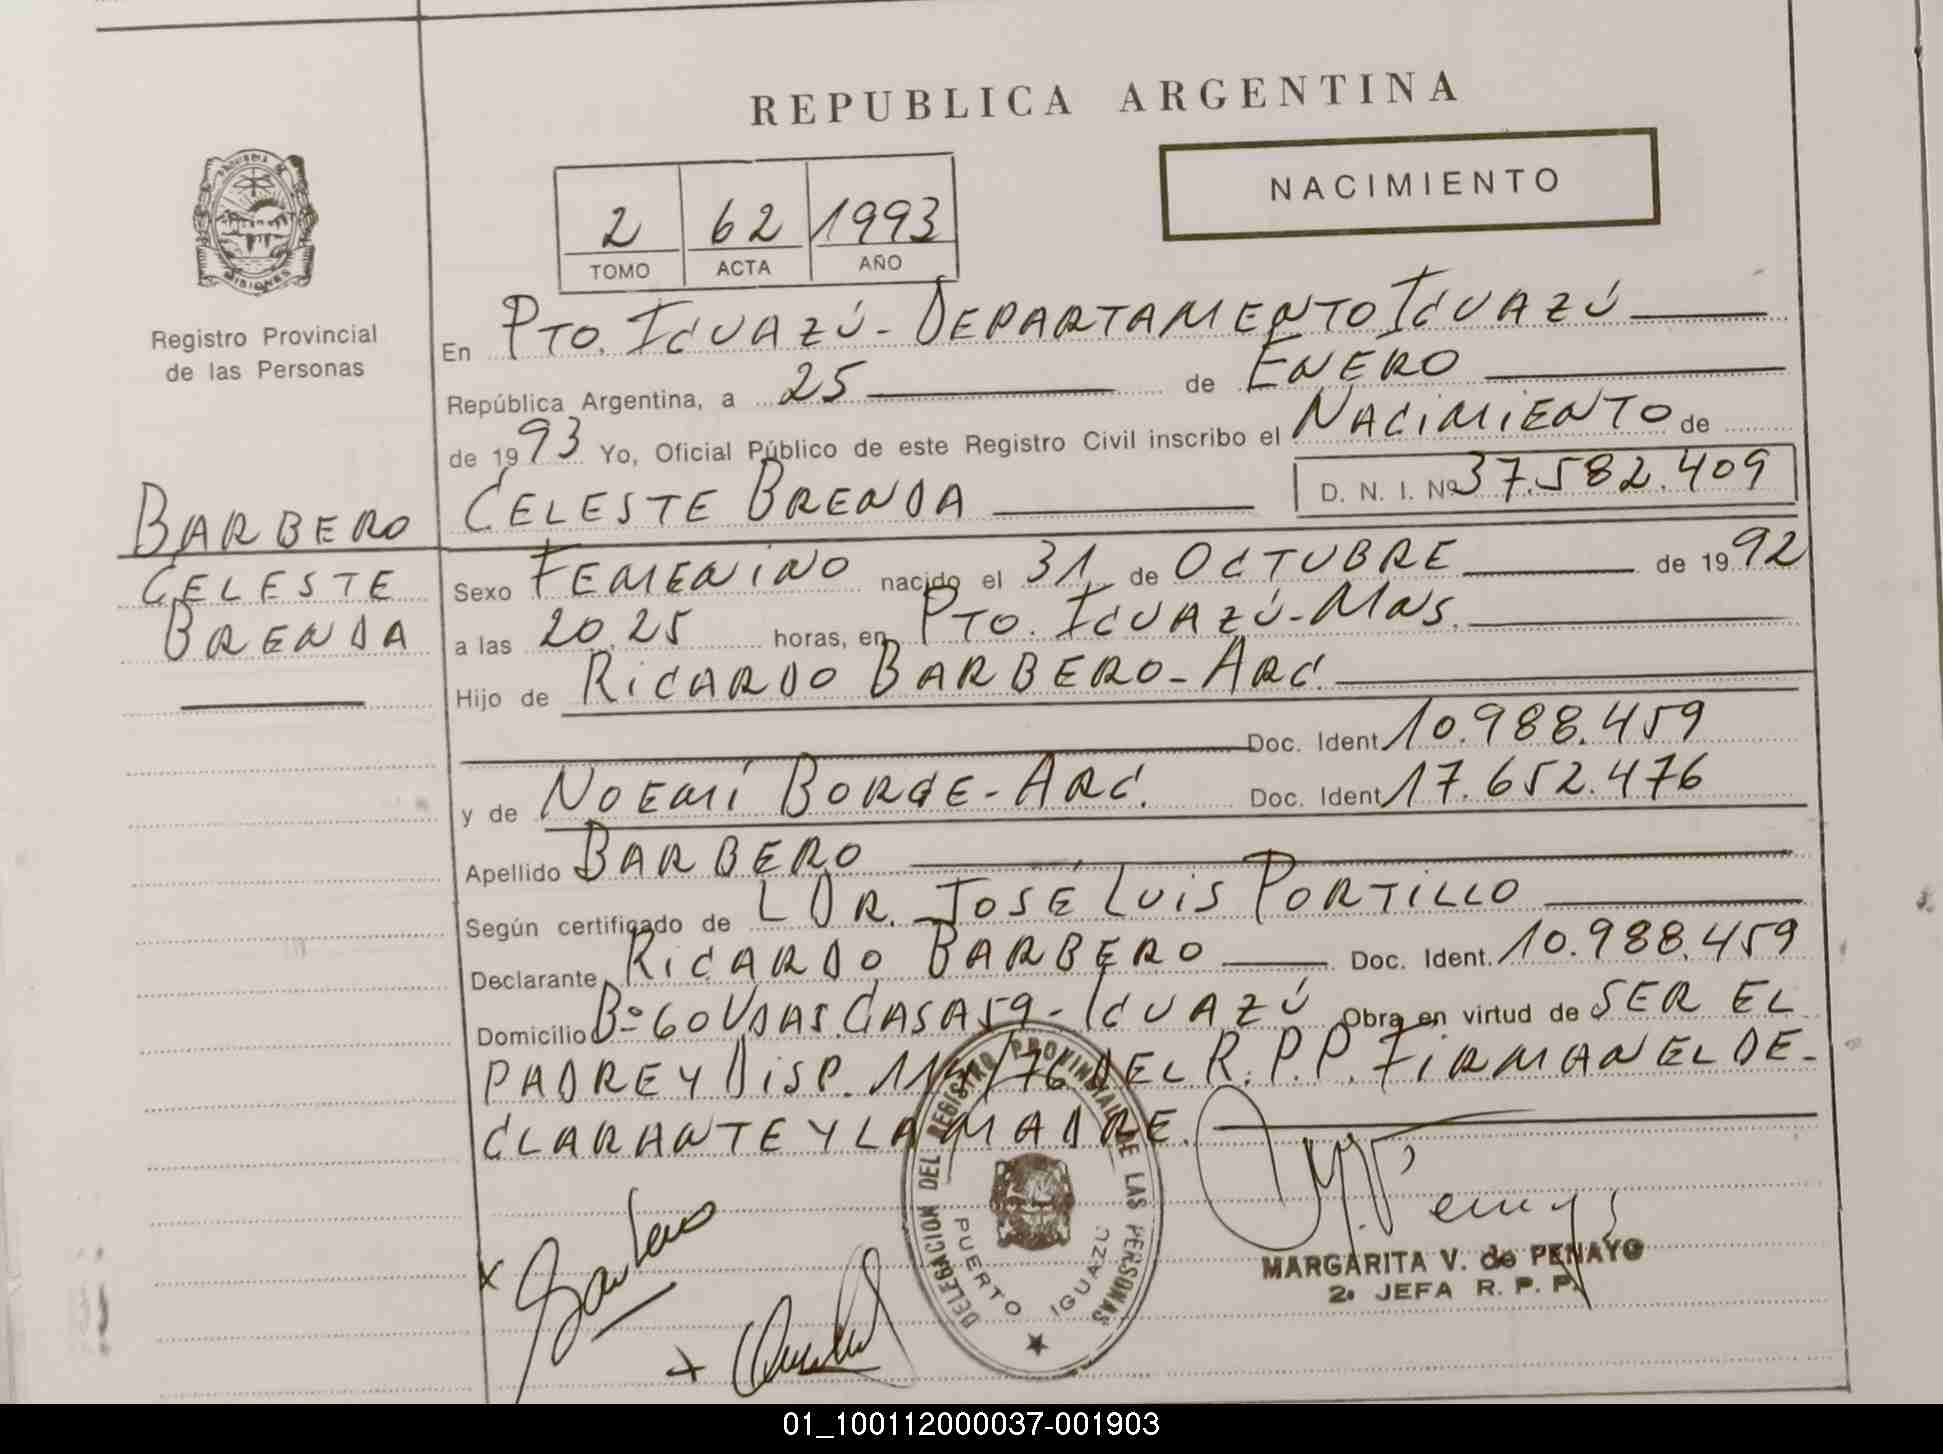 REPUBLICA ARGENTINA
NACIMIENTO
2 62 1993
TOMO ACTA AÑO
MISIONES
Registro Provincial
de las Personas
BARBERO
CELESTE
BRENDA
En PTO. IGUAZÚ - DEPARTAMENTO IGUAZÚ
República Argentina, a 25 de ENERO
de 1993 Yo, Oficial Público de este Registro Civil inscribo el NACIMIENTO de
CELESTE BRENDA D. N. I. Nº 37.582.409
Sexo FEMENINO nacido el 31 de OCTUBRE de 1992
a las 20,25 horas, en PTO. IGUAZÚ - MNS.
Hijo de RICARDO BARBERO - ARG.
Doc. Ident. 10.988.459
y de NOEMÍ BORGE - ARG. Doc. Ident. 17.652.476
Apellido BARBERO
Según certificado de L DR. JOSÉ LUIS PORTILLO
Declarante RICARDO BARBERO Doc. Ident. 10.988.459
Domicilio Bº 60 VDAS. CASA 59 - IGUAZÚ Obra en virtud de SER EL
PADRE Y DISP. 114/76 DEL R.P.P. FIRMAN EL DE-
CLARANTE Y LA MADRE.
DELEGACION DEL REGISTRO PROVINCIAL DE LAS PERSONAS
PUERTO IGUAZU
MARGARITA V. de PENAYO
2a JEFA R. P. P.
01_100112000037-001903